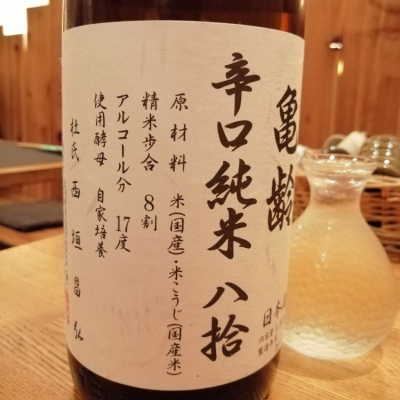 亀齢
辛口純米 八拾
原材料 米(国産)・米こうじ(国産米)
精米歩合 8割
アルコール分 17度
使用酵母 自家培養
杜氏 西垣昌弘
日本